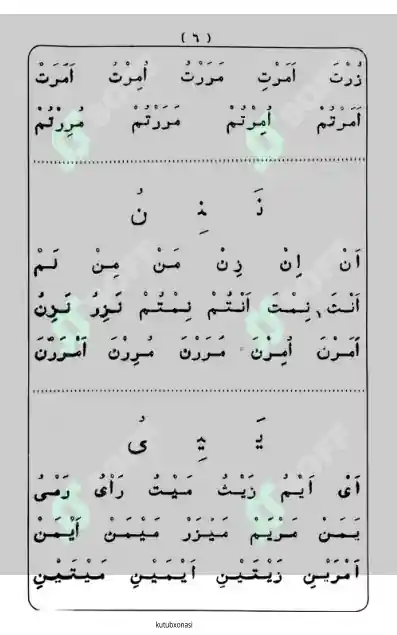 ( ٦ )
زُرْتَ اَمَرْتِ مَرَرْتُ اُمِرْتُ اَمَرَتْ
اَمَرْتُمْ اُمِرْتُمْ مَرَرْتُمْ مُرِرْتُمْ
نَ نِ نُ
اَنْ اِنْ زِنْ مَنْ مِنْ لَمْ
اَنْتَ نِمْتَ اَنْتُمْ نِمْتُمْ نَزِرُ نَزِنُ
اَمَرْنَ اُمِرْنَ مَرَرْنَ مُرِرْنَ
يَ يِ ىُ
اَىْ اَيْمُ زَيْتُ مَيْتُ رَأْىُ رَمْىُ
يَمَنْ مَرْيَمْ مَيْزَرْ مَيْمَنْ اَيْمَنْ
اَمْرَيْنِ زَيْتَيْنِ اَيْمَيْنِ مَيْتَيْنِ
kutubxonasi